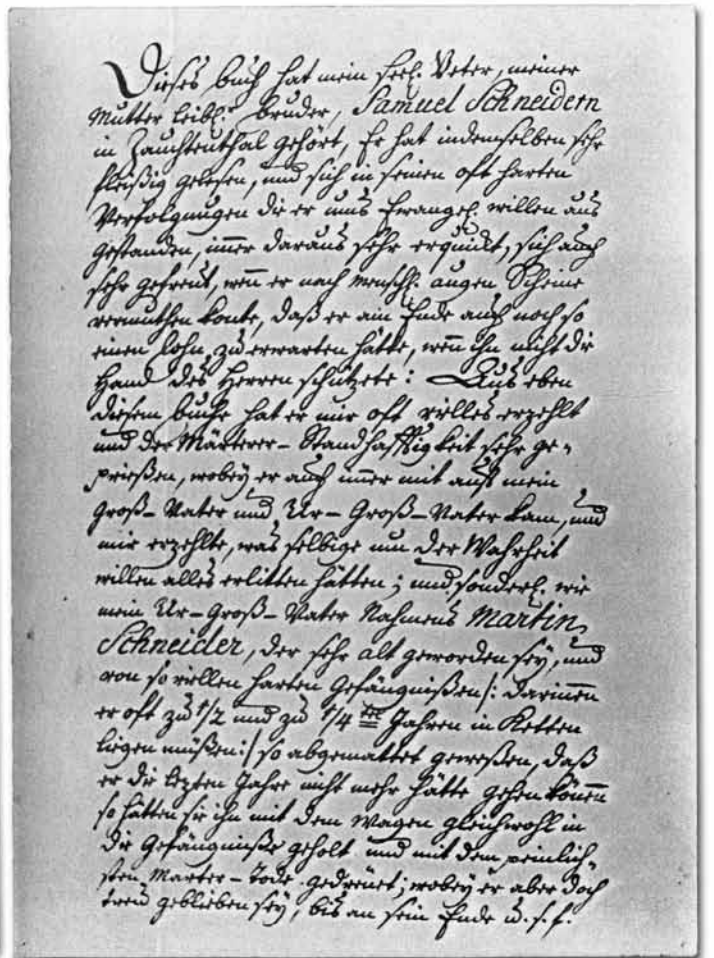 Dieses buch hat mein seel. Veter, meiner
Mutter leibl. bruder, Samuel Schneidern
in Zauchtenthal gehört, Er hat indemselben sehr
fleißig gelesen, und sich in seinen oft harten
Verfolgungen die er ums Evangel. willen aus
gestanden, imer daraus sehr erquickt, sich auch
sehr gefreut, wen er nach menschl. augen Scheine
vermuthen konte, daß er am Ende auch noch so
einen lohn zu erwarten hätte, wen ihn nicht die
Hand des Herren schützete: Aus eben
diesem buche hat er mir oft vielles erzehlt
und der Märterer-Standhafftigkeit sehr ge-
prießen, wobey er auch imer mit auf mein
groß-Vater und Ur-Groß-Vater kam, und
mir erzehlte, was selbige um der Wahrheit
willen alles erlitten hätten; und sonderl. wie
mein Ur-groß-Vater Nahmens Martin
Schneider, der sehr alt geworden sey, und
von so viellen harten Gefängnißen /: darinnen
er oft zu 1/2 und zu 1/4 tel Jahren in Ketten
liegen müßen :/ so abgemattet geweßen, daß
er die lezten Jahre nicht mehr hätte gehen können
so hätten sie ihn mit dem Wagen gleichwohl in
die Gefängniße geholt und mit dem peinlich-
sten Marter-Tode gedreuet; wobey er aber doch
treu geblieben sey, bis an sein Ende u. s. f.